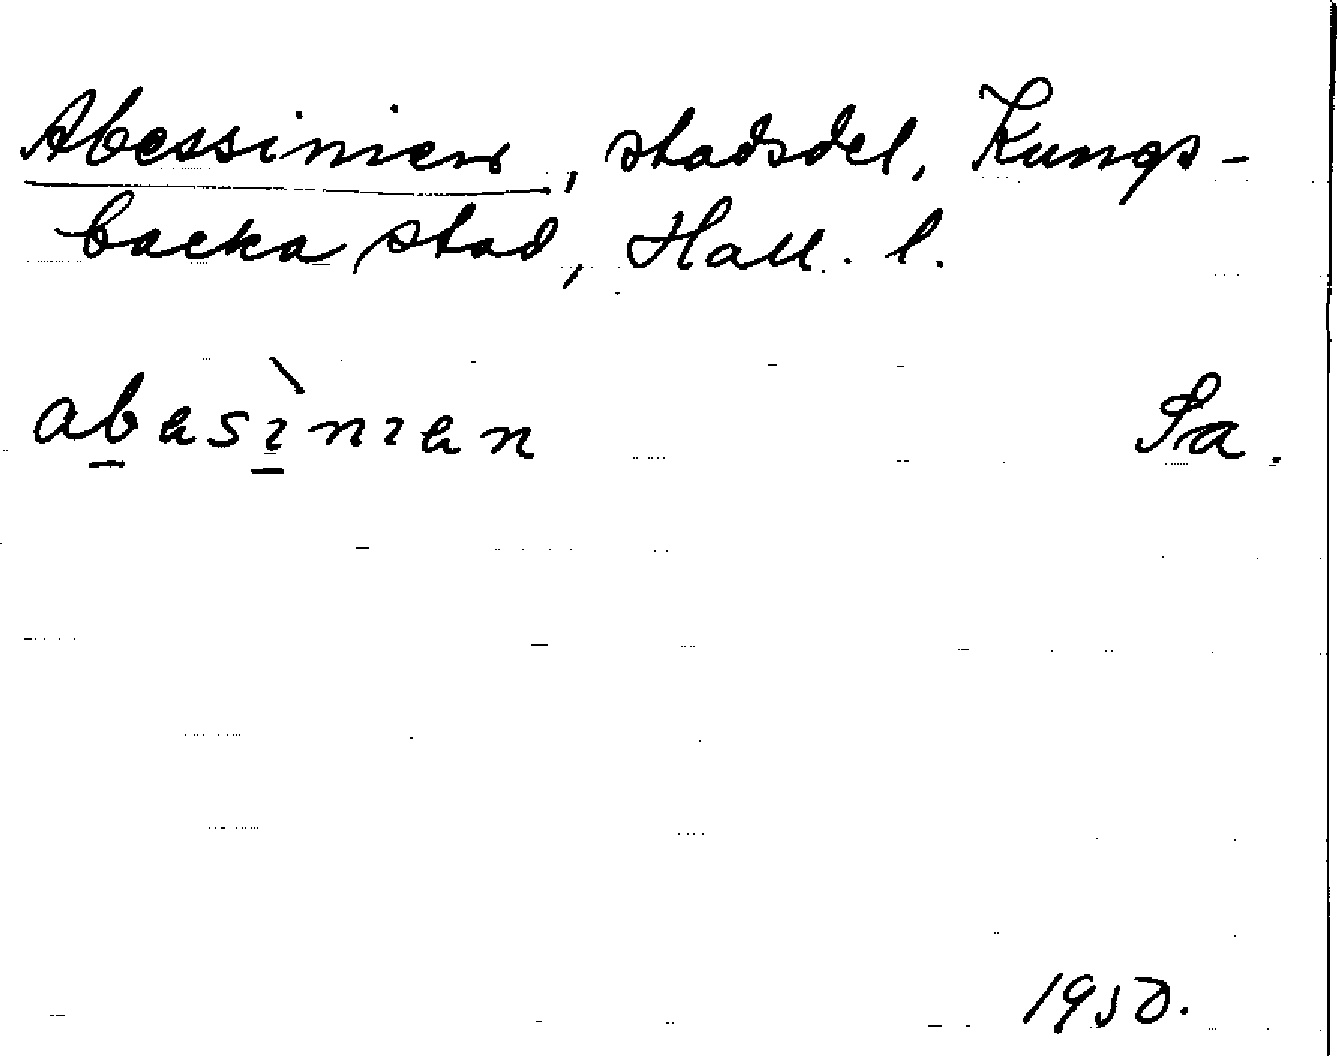 Abessinien, stadsdel, Kungs-
backa stad, Hall. l.
abesìnien Sa.
1950.